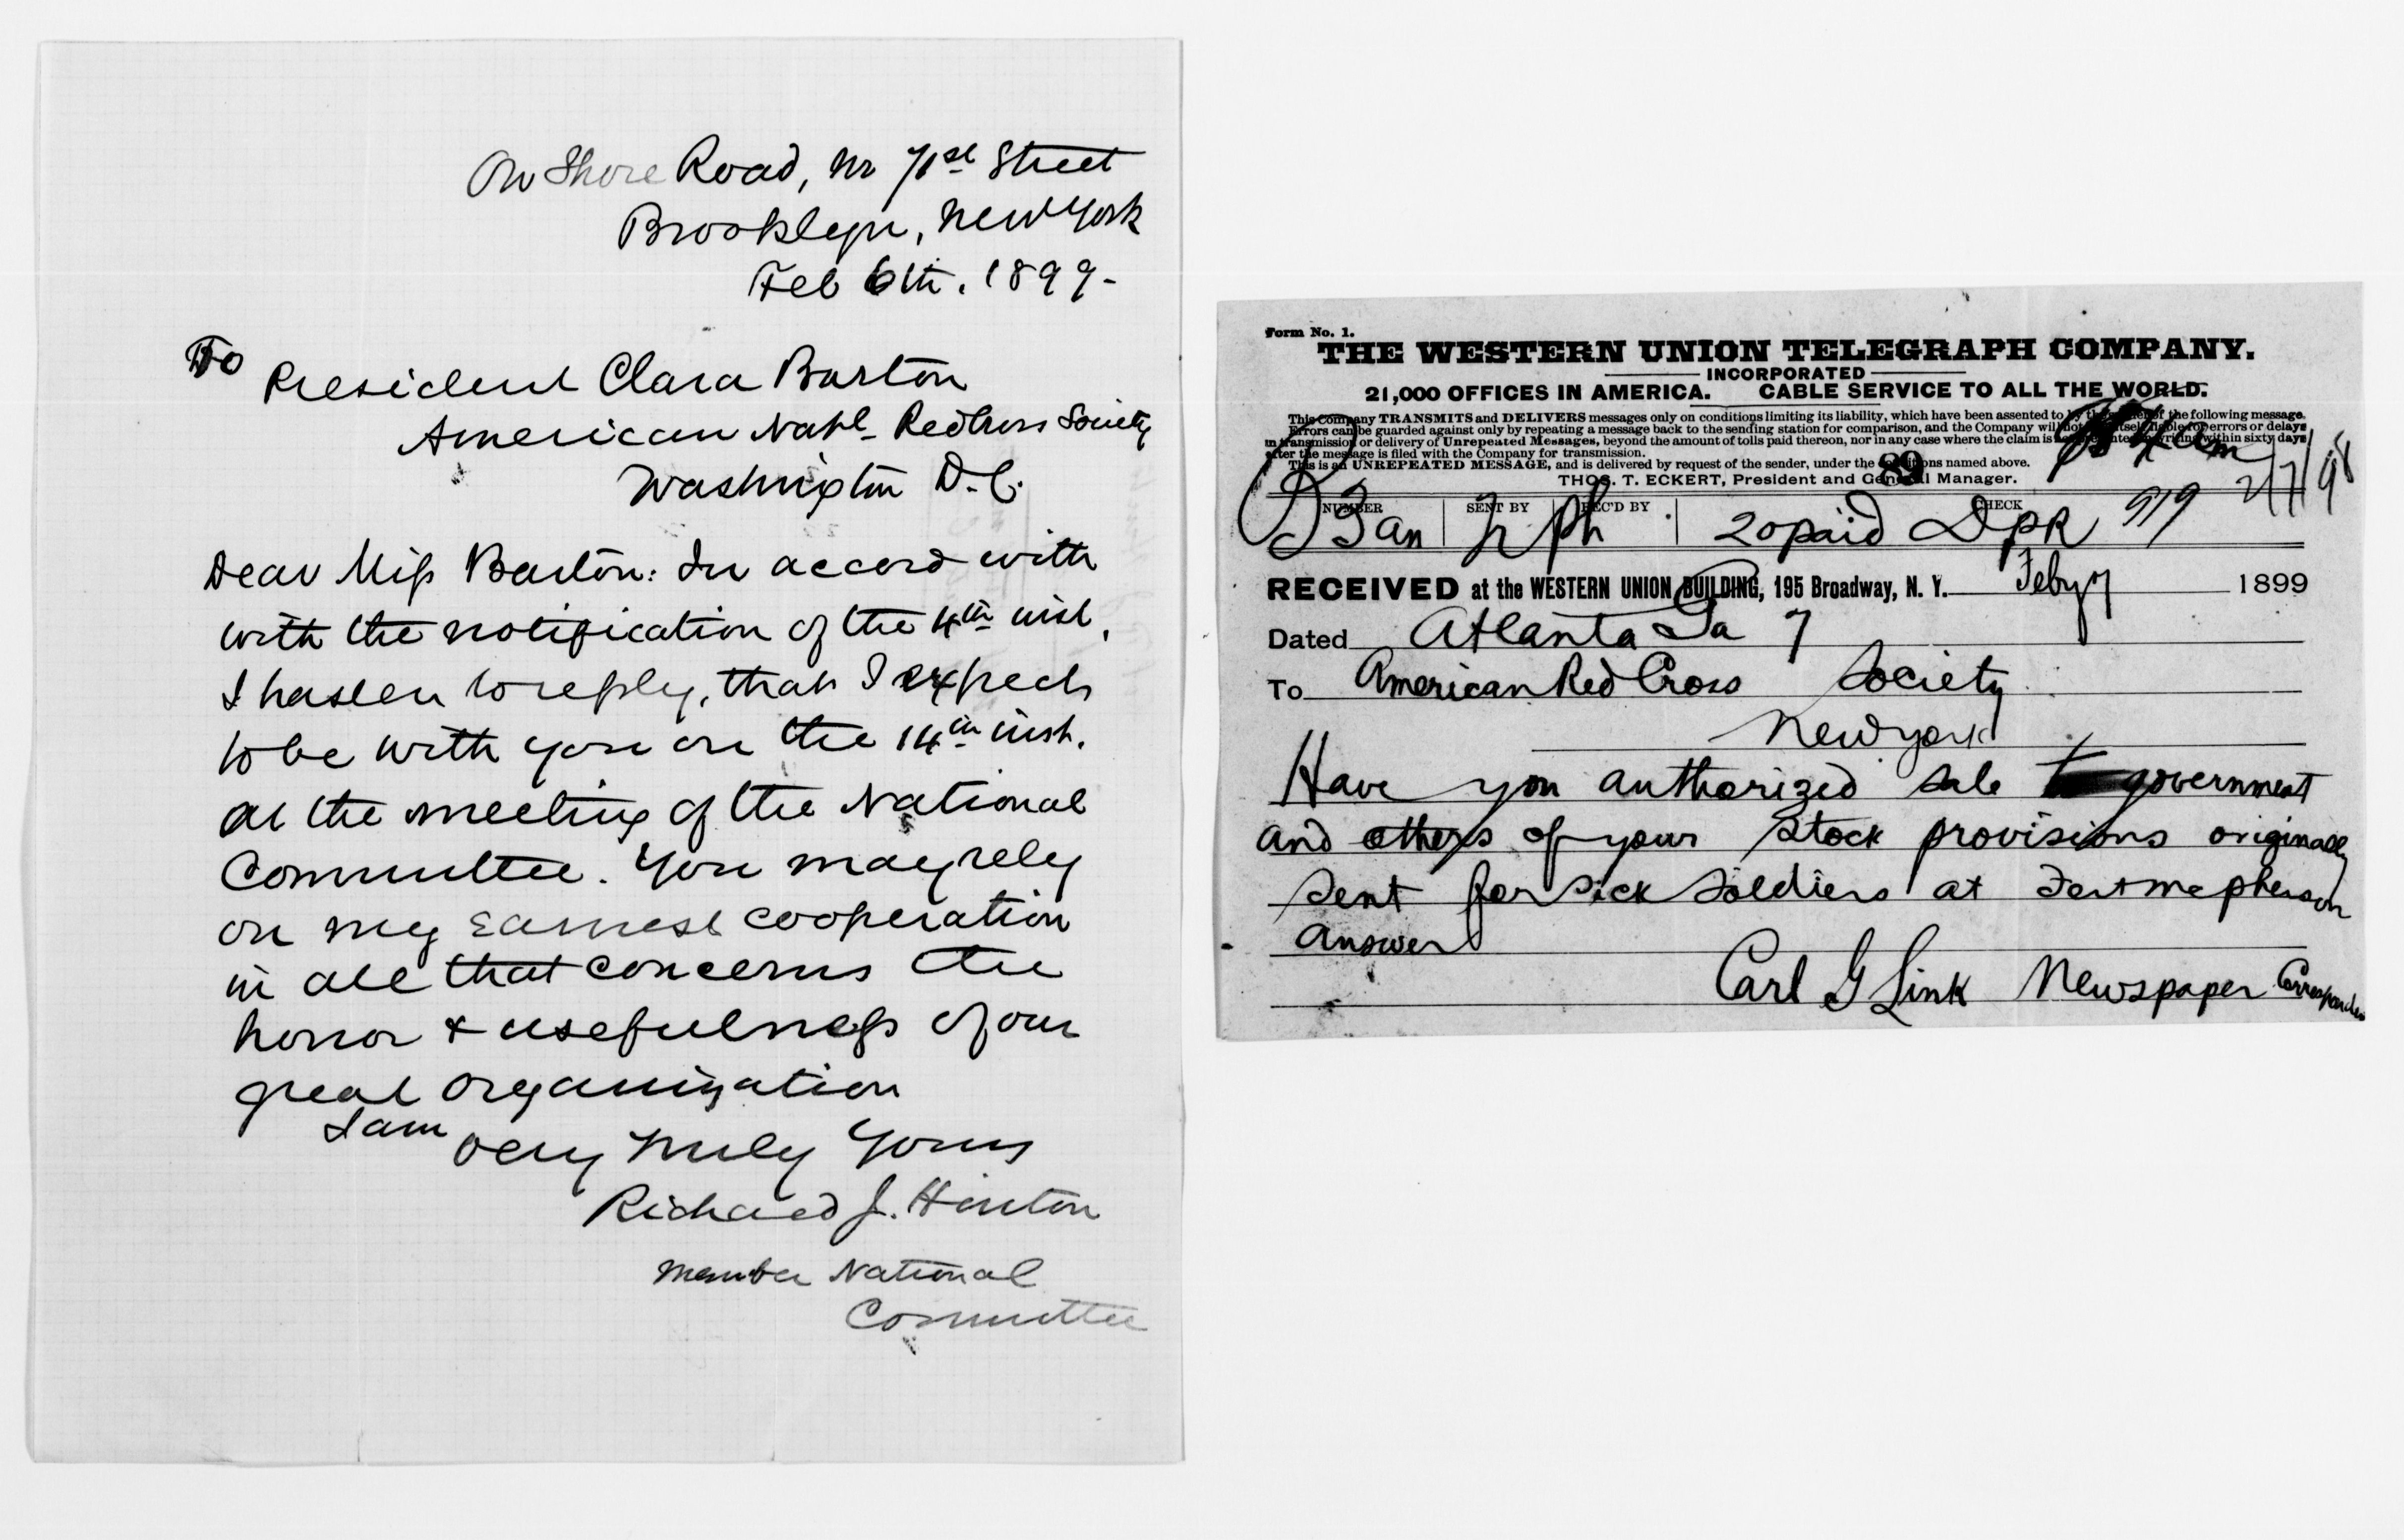 On Shore Road, nr 71st Street
Brooklyn, New York
Feb 6th. 1899-
To
President Clara Barton
American Natl- Red Cross Society
Washington D.C.
Dear Miss Barton: In accord with
with the notification of the 4th inst,
I hasten to reply, that I expect
to be with you on the 14th inst.
at the meeting of the National
Committee. You may rely
on my earnest cooperation
in all that concerns the
honor & usefulness of our
great organization
I am
Very truly yours
Richard J. Hinton
Member National
Committee
Form No. 1.
THE WESTERN UNION TELEGRAPH COMPANY.
INCORPORATED
21,000 OFFICES IN AMERICA. CABLE SERVICE TO ALL THE WORLD.
This Company TRANSMITS and DELIVERS messages only on conditions limiting its liability, which have been assented to by the sender of the following message.
Errors can be guarded against only by repeating a message back to the sending station for comparison, and the Company will not hold itself liable for errors or delays
in transmission or delivery of Unrepeated Messages, beyond the amount of tolls paid thereon, nor in any case where the claim is not presented in writing within sixty days
after the message is filed with the Company for transmission.
This is an UNREPEATED MESSAGE, and is delivered by request of the sender, under the conditions named above.
89
THOS. T. ECKERT, President and General Manager.
2/7/98
NUMBER SENT BY REC'D BY CHECK
20 paid DPR 919
RECEIVED at the WESTERN UNION BUILDING, 195 Broadway, N. Y. Feby 7 1899
Dated Atlanta Ga 7
To American Red Cross Society
New york
Have you authorized sale to government
and others of your stock provisions originally
sent for sick soldiers at Fort mcpherson
answer
Carl G Link Newspaper Correspondent